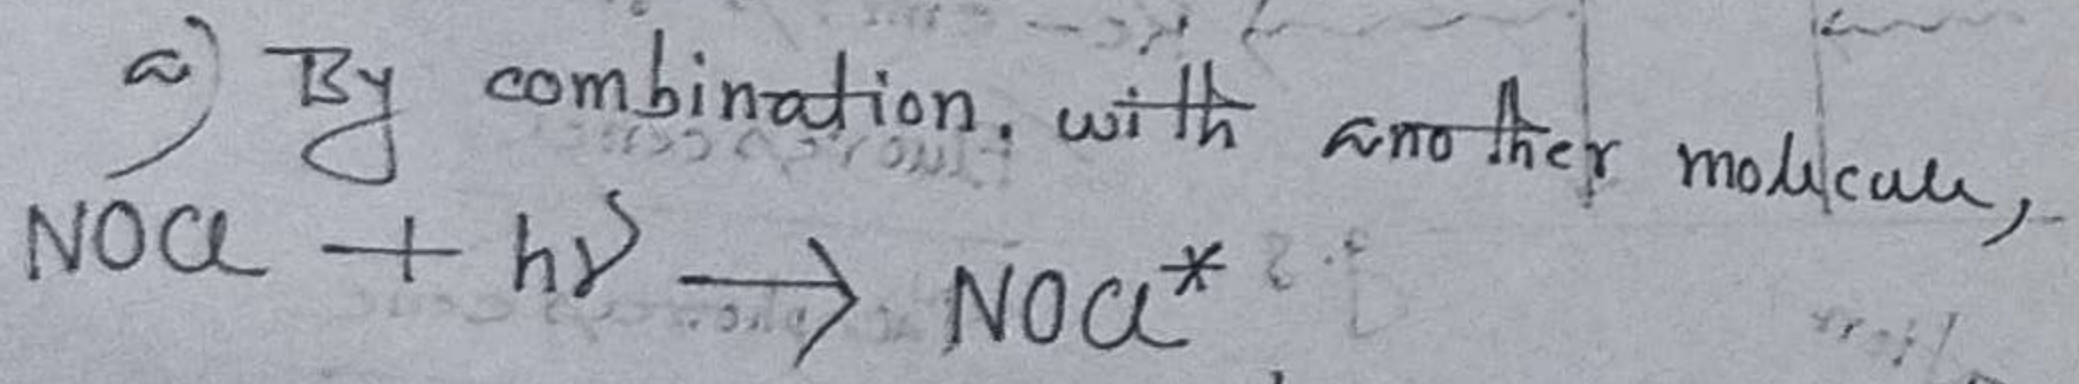 a) By combination. with another molecule,
NOCl + hν → NOCl*